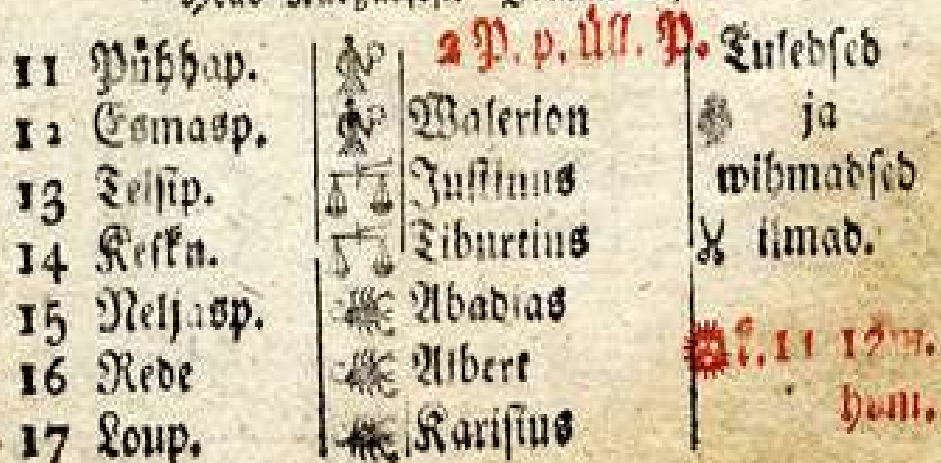 11 Pühhap. 2 P. p. Ull. P. Tuledsed
12 Esmasp. Walerion ja
13 Teisip. Justinus wihmadsed
14 Keskn. Tiburtius ilmad.
15 Neljasp. Abadias
16 Rede Albert k. 11 12 m.
17 Loup. Karisius hom.